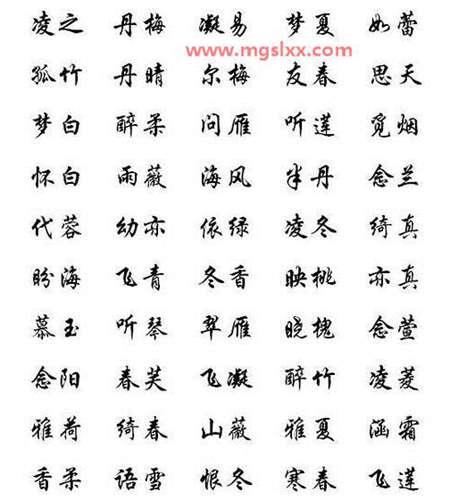 凌之 丹梅 凝易 梦夏 如蕾
www.mgslxx.com
孤竹 丹晴 尔梅 友春 思天
梦白 醉柔 问雁 听莲 觅烟
怀白 雨薇 海风 半丹 念兰
代蓉 幼亦 依绿 凌冬 绮真
盼海 飞青 冬香 映桃 亦真
慕玉 听琴 翠雁 晓槐 念萱
念阳 春芙 飞凝 醉竹 凌菱
雅荷 绮春 山薇 雅夏 涵霜
香柔 语雪 恨冬 寒春 飞莲